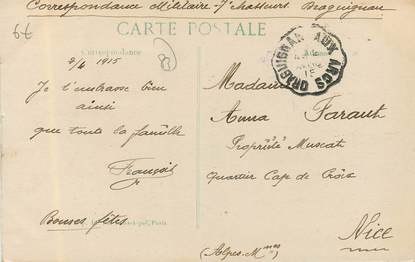 Correspondance Militaire 7e Chasseurs Draguignan
CARTE POSTALE
Correspondance
6€
83
3/4 1915
Je t'embrasse bien
ainsi
que toute la famille
François
Bonnes fêtes
Paris
DRAGUIGNAN AUX ARCS
Madame
Anna Faraut
Propriété Muscat
Quartier Cap de Croix
Nice
(Alpes-Mmes)